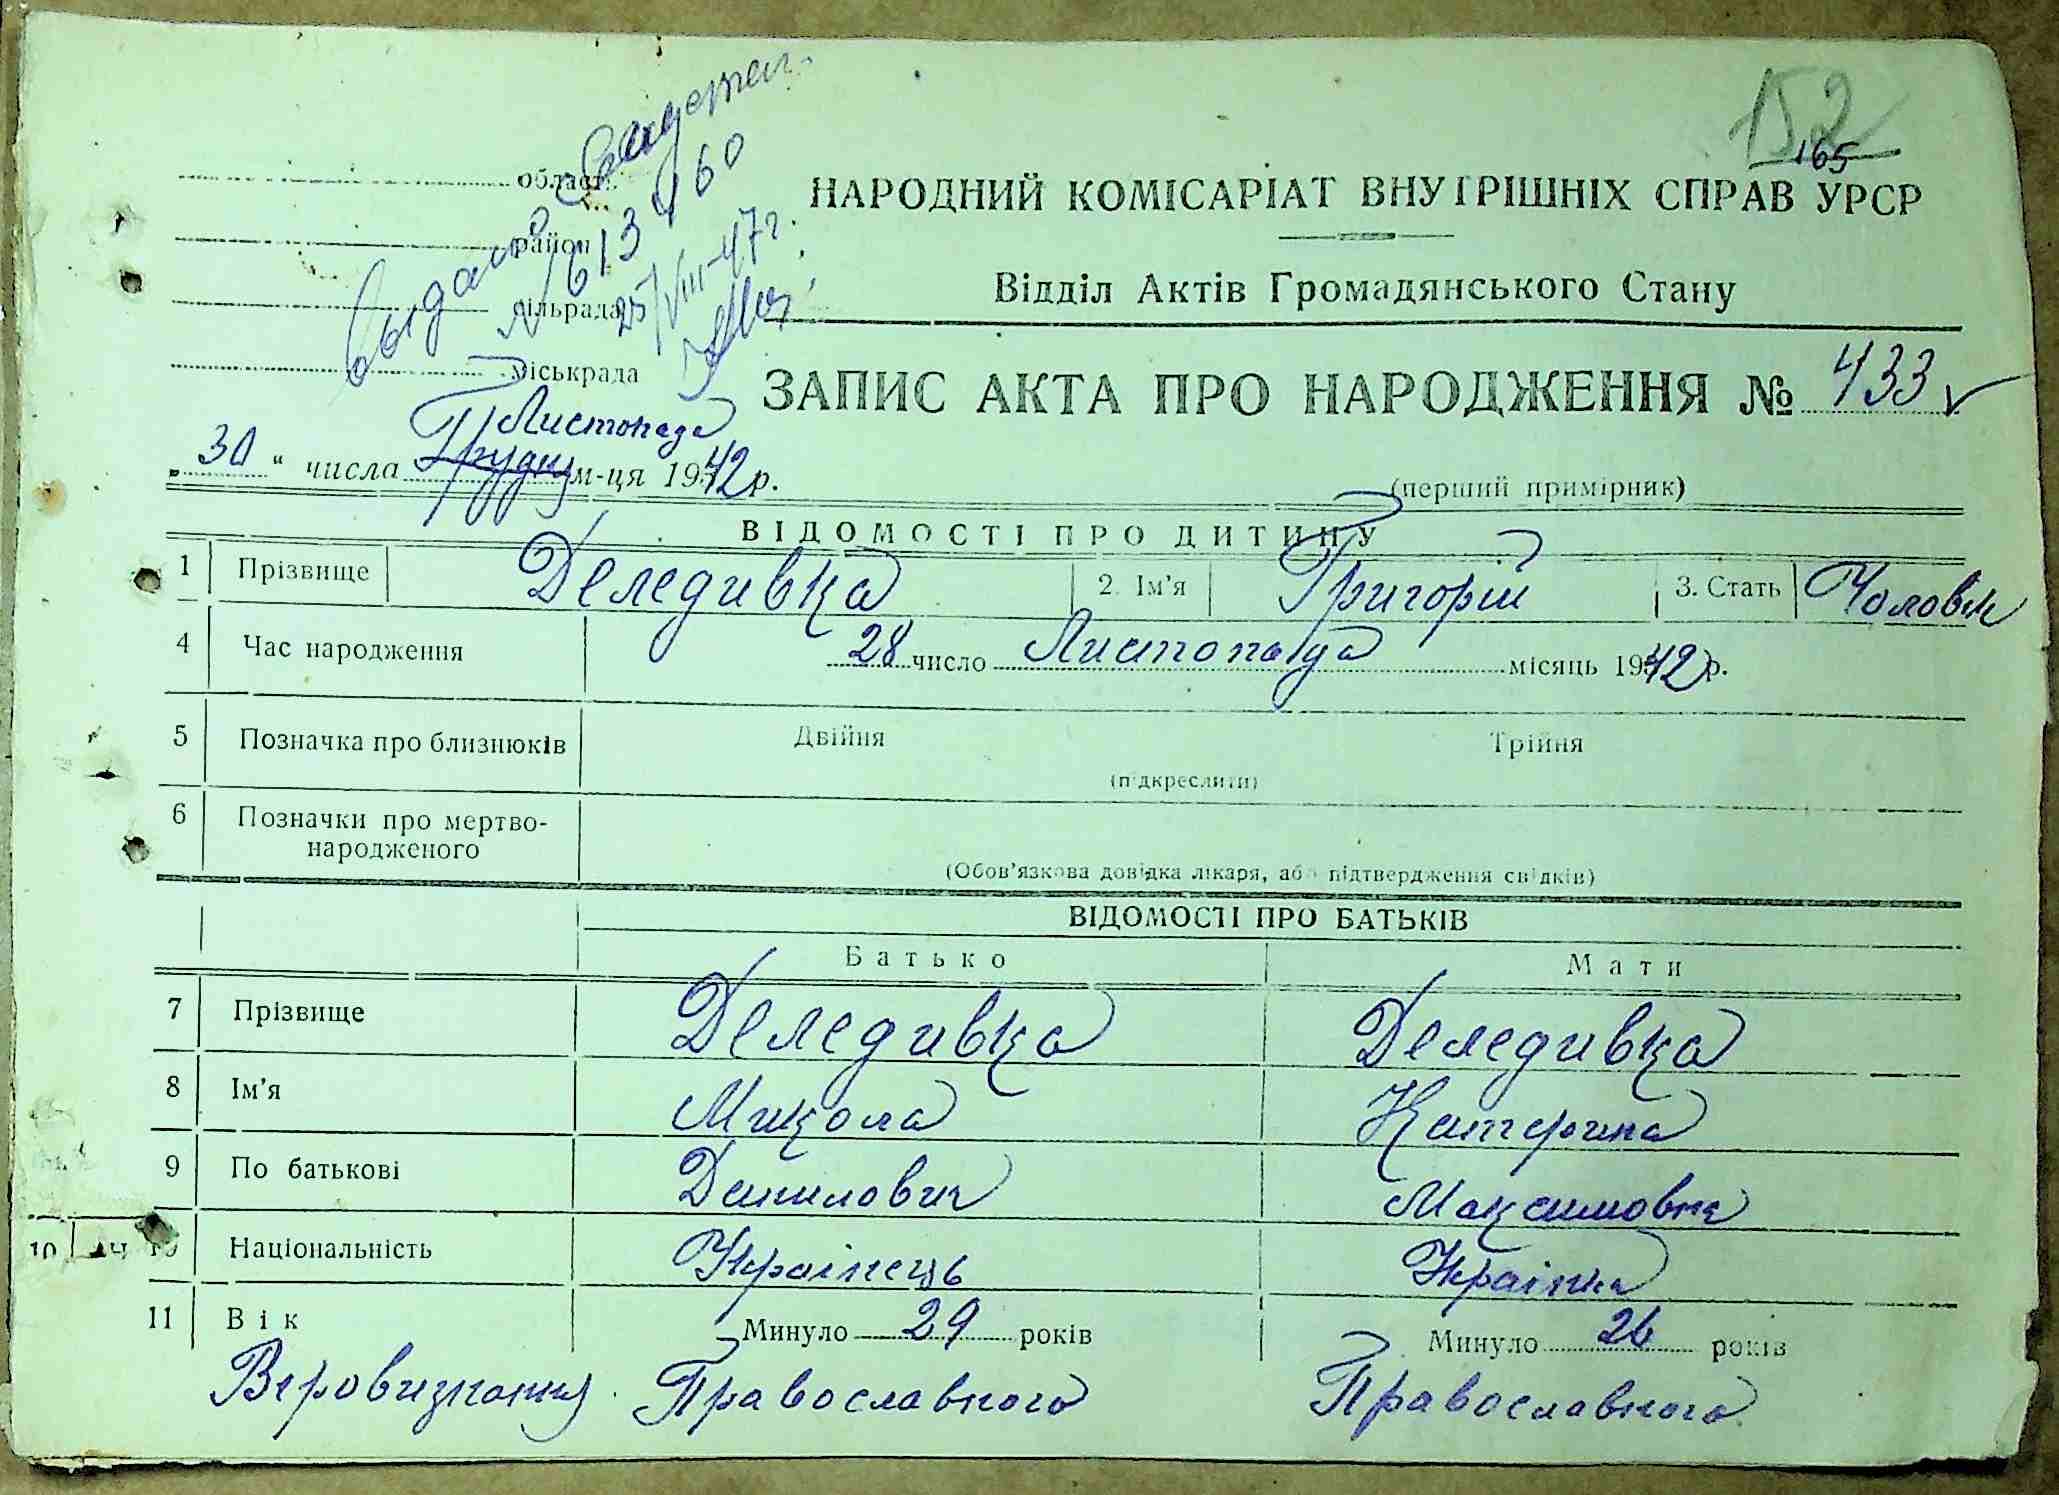 152
165
Выдано Свидетел.
№ 613460
25/VIII-47г.
області
район
сільрада
міськрада
НАРОДНИЙ КОМІСАРІАТ ВНУТРІШНІХ СПРАВ УРСР
Відділ Актів Громадянського Стану
ЗАПИС АКТА ПРО НАРОДЖЕННЯ № 433
Листопада
„30“ числа Грудня м-ця 1942р.
(перший примірник)
ВІДОМОСТІ ПРО ДИТИНУ
1 Прізвище Деледивка 2. Ім'я Григорій 3. Стать Чоловік
4 Час народження 28 число Листопада місяць 1942р.
5 Позначка про близнюків Двійня Трійня
(підкреслити)
6 Позначки про мертво-
народженого
(Обов'язкова довідка лікаря, або підтвердження свідків)
ВІДОМОСТІ ПРО БАТЬКІВ
Батько Мати
7 Прізвище Деледивка Деледивка
8 Ім'я Микола Катерина
9 По батькові Данилович Максимовна
10 Національність Українець Українка
11 Вік Минуло 29 років Минуло 26 років
Веровизнання Православного Православного